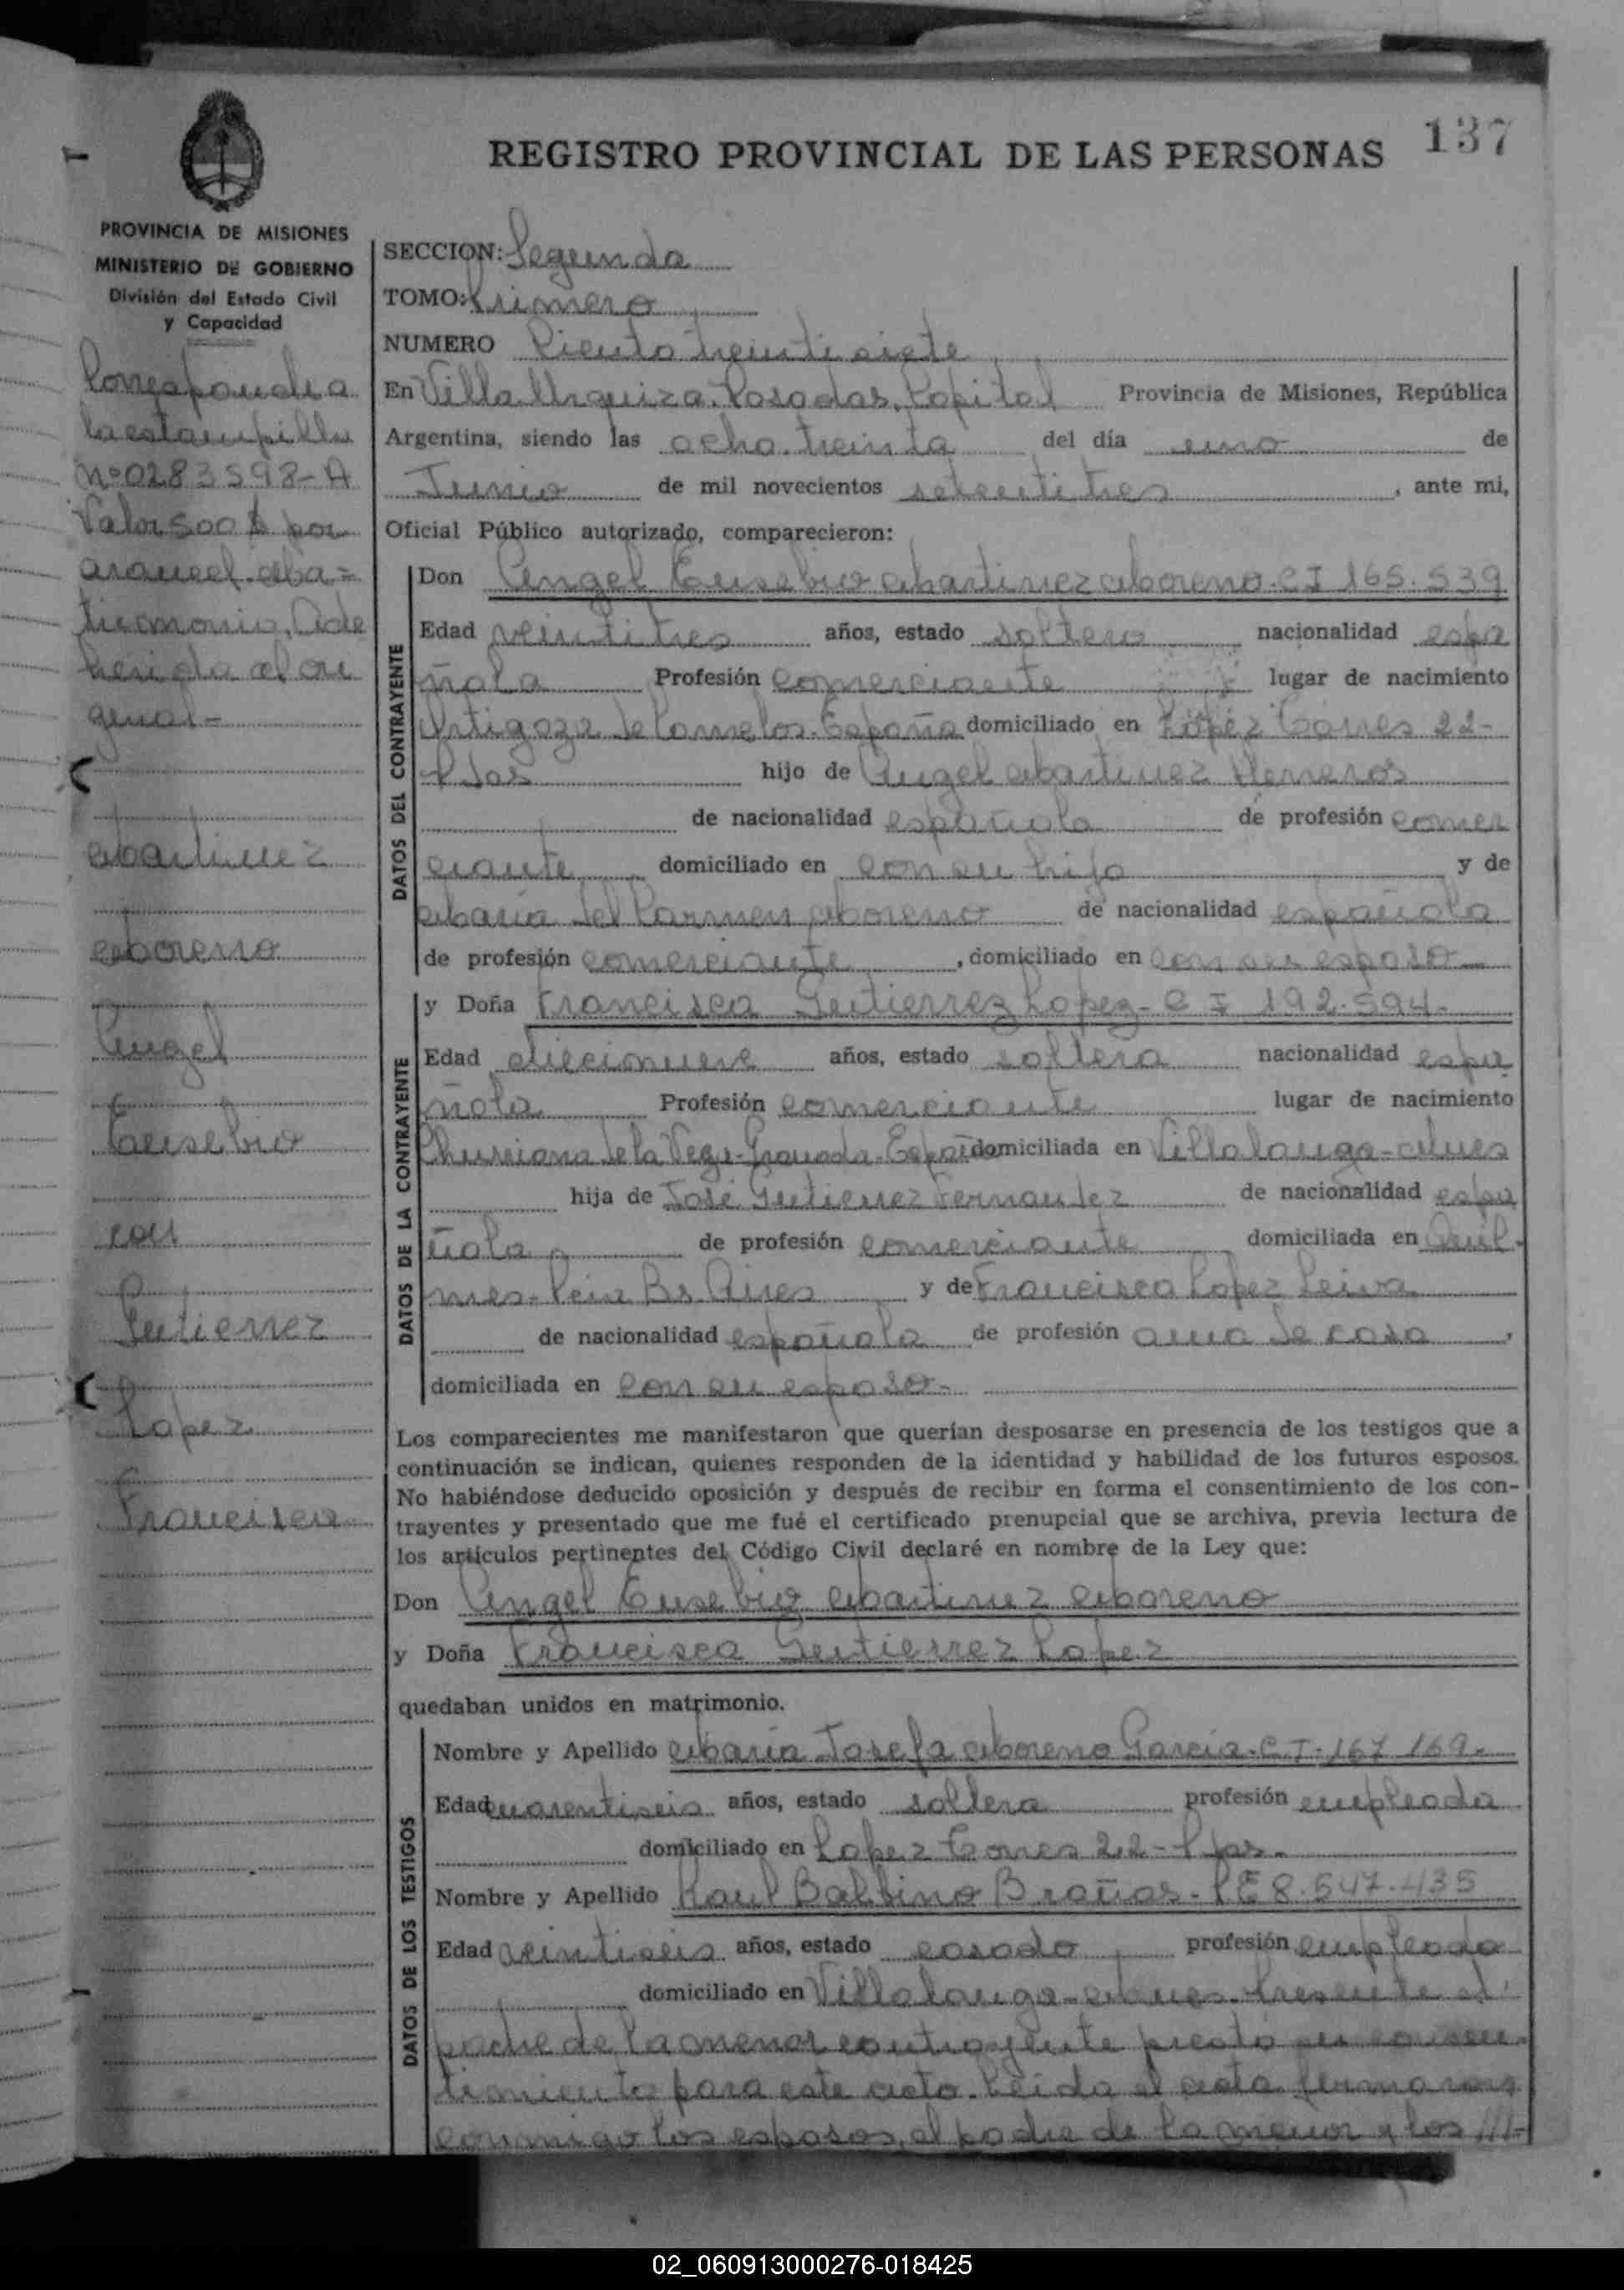 137
REGISTRO PROVINCIAL DE LAS PERSONAS
PROVINCIA DE MISIONES
MINISTERIO DE GOBIERNO
División del Estado Civil
y Capacidad
Corresponde a
la estampilla
Nº 0283598-A
Valor 500 $ por
arancel Ma=
trimonio. Ade
herida al ori
ginal-
Martinez
Moreno
Angel
Eusebio
con
Gutierrez
Lopez
Francisca
SECCION: Segunda
TOMO: Primero
NUMERO Ciento treinti siete
En Villa Urquiza. Posadas, Capital Provincia de Misiones, República
Argentina, siendo las ocho treinta del día uno de
Junio de mil novecientos setentitres, ante mi,
Oficial Público autorizado, comparecieron:
DATOS DEL CONTRAYENTE
Don Angel Eusebio Martinez Moreno. C I 165.539
Edad veintitres años, estado soltero nacionalidad espa
ñola Profesión comerciante lugar de nacimiento
Ortigoza de Cameros. España domiciliado en López Torres 22-
Pdas hijo de Angel Martinez Herreros
de nacionalidad española de profesión comer
ciante domiciliado en con su hijo y de
Maria del Carmen Moreno de nacionalidad española
de profesión comerciante, domiciliado en con su esposo
DATOS DE LA CONTRAYENTE
y Doña Francisca Gutierrez Lopez- C I 192.594.
Edad diecinueve años, estado soltera nacionalidad espa
ñola Profesión comerciante lugar de nacimiento
Churriana de la Vega-Granada-España domiciliada en Villalonga-Mnes
hija de José Gutierrez Fernandez de nacionalidad espa
ñola de profesión comerciante domiciliada en Quil
mes- Pcia Bs. Aires y de Francisca Lopez Leiva
de nacionalidad española de profesión ama de casa,
domiciliada en con su esposo-
Los comparecientes me manifestaron que querían desposarse en presencia de los testigos que a
continuación se indican, quienes responden de la identidad y habilidad de los futuros esposos.
No habiéndose deducido oposición y después de recibir en forma el consentimiento de los con-
trayentes y presentado que me fué el certificado prenupcial que se archiva, previa lectura de
los artículos pertinentes del Código Civil declaré en nombre de la Ley que:
Don Angel Eusebio Martinez Moreno
y Doña Francisca Gutierrez Lopez
quedaban unidos en matrimonio.
DATOS DE LOS TESTIGOS
Nombre y Apellido Maria Josefa Moreno Garcia. C I- 167 169.
Edad cuarentiseis años, estado soltera profesión empleada
domiciliado en Lopez Torres 22- Pdas.
Nombre y Apellido Raul Balbino Brañas- LE 8.547.435
Edad veintiseis años, estado casado profesión empleado
domiciliado en Villalonga-Mnes. Presente el
padre de la menor contrayente prestó su consen
timiento para este acto. Leida el acta firmaron
conmigo los esposos, el padre de la menor y los ///-
02_060913000276-018425